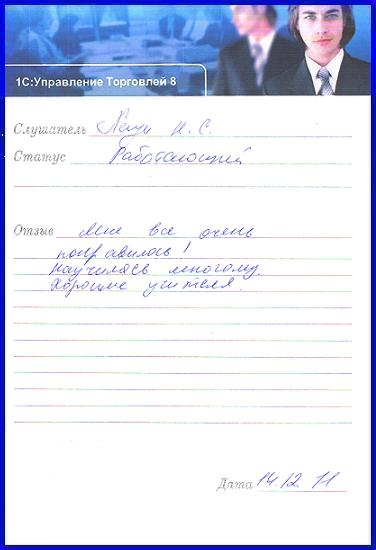 1С:Управление Торговлей 8
Слушатель Н. С.
Статус Работающий
Отзыв Мне все очень
понравилось!
Научилась многому.
Хорошие учителя.
Дата 14.12 11